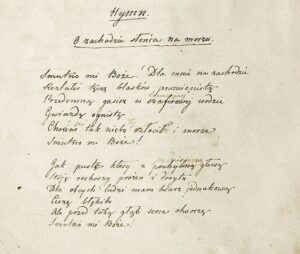 Hymn.
O zachodzie słońca na morzu.
Smutno mi Boże! Dla mnie na zachodzie
Rozlałeś tęczę blasków promienistą
Przedemną gasisz w szafirowej wodzie
Gwiazdy ogniste
Chociaż tak niebo i morze
Smutno mi Boże!
Jak puste kłosy z podniesioną głową
Stoję rozkoszy próżen i dosytu
Dla obcych ludzi mam twarz jednakową
Ciszę błękitu
Ale przed tobą głąb serca otworzę
Smutno mi Boże!